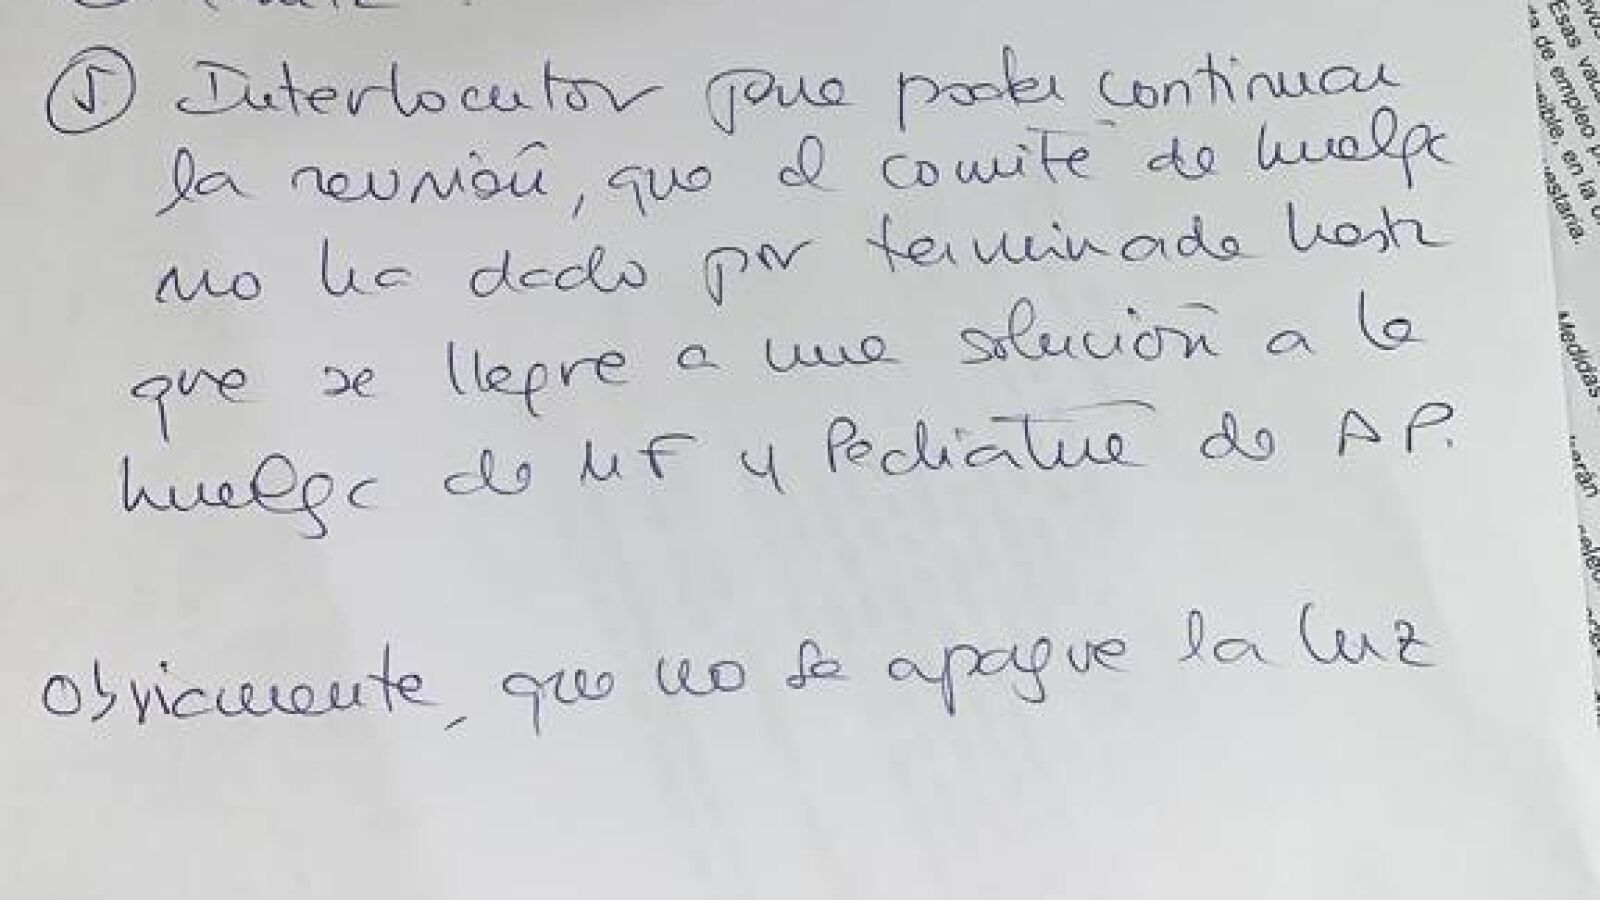 ⑤ Interlocutor para poder continuar
la reunión, que el comité de huelga
no ha dado por terminada hasta
que se llegue a una solución a la
huelga de MF y Pediatría de AP.
Obviamente, que no se apague la luz
Esas
de empleo
sible, en la
estaría.
Medidas